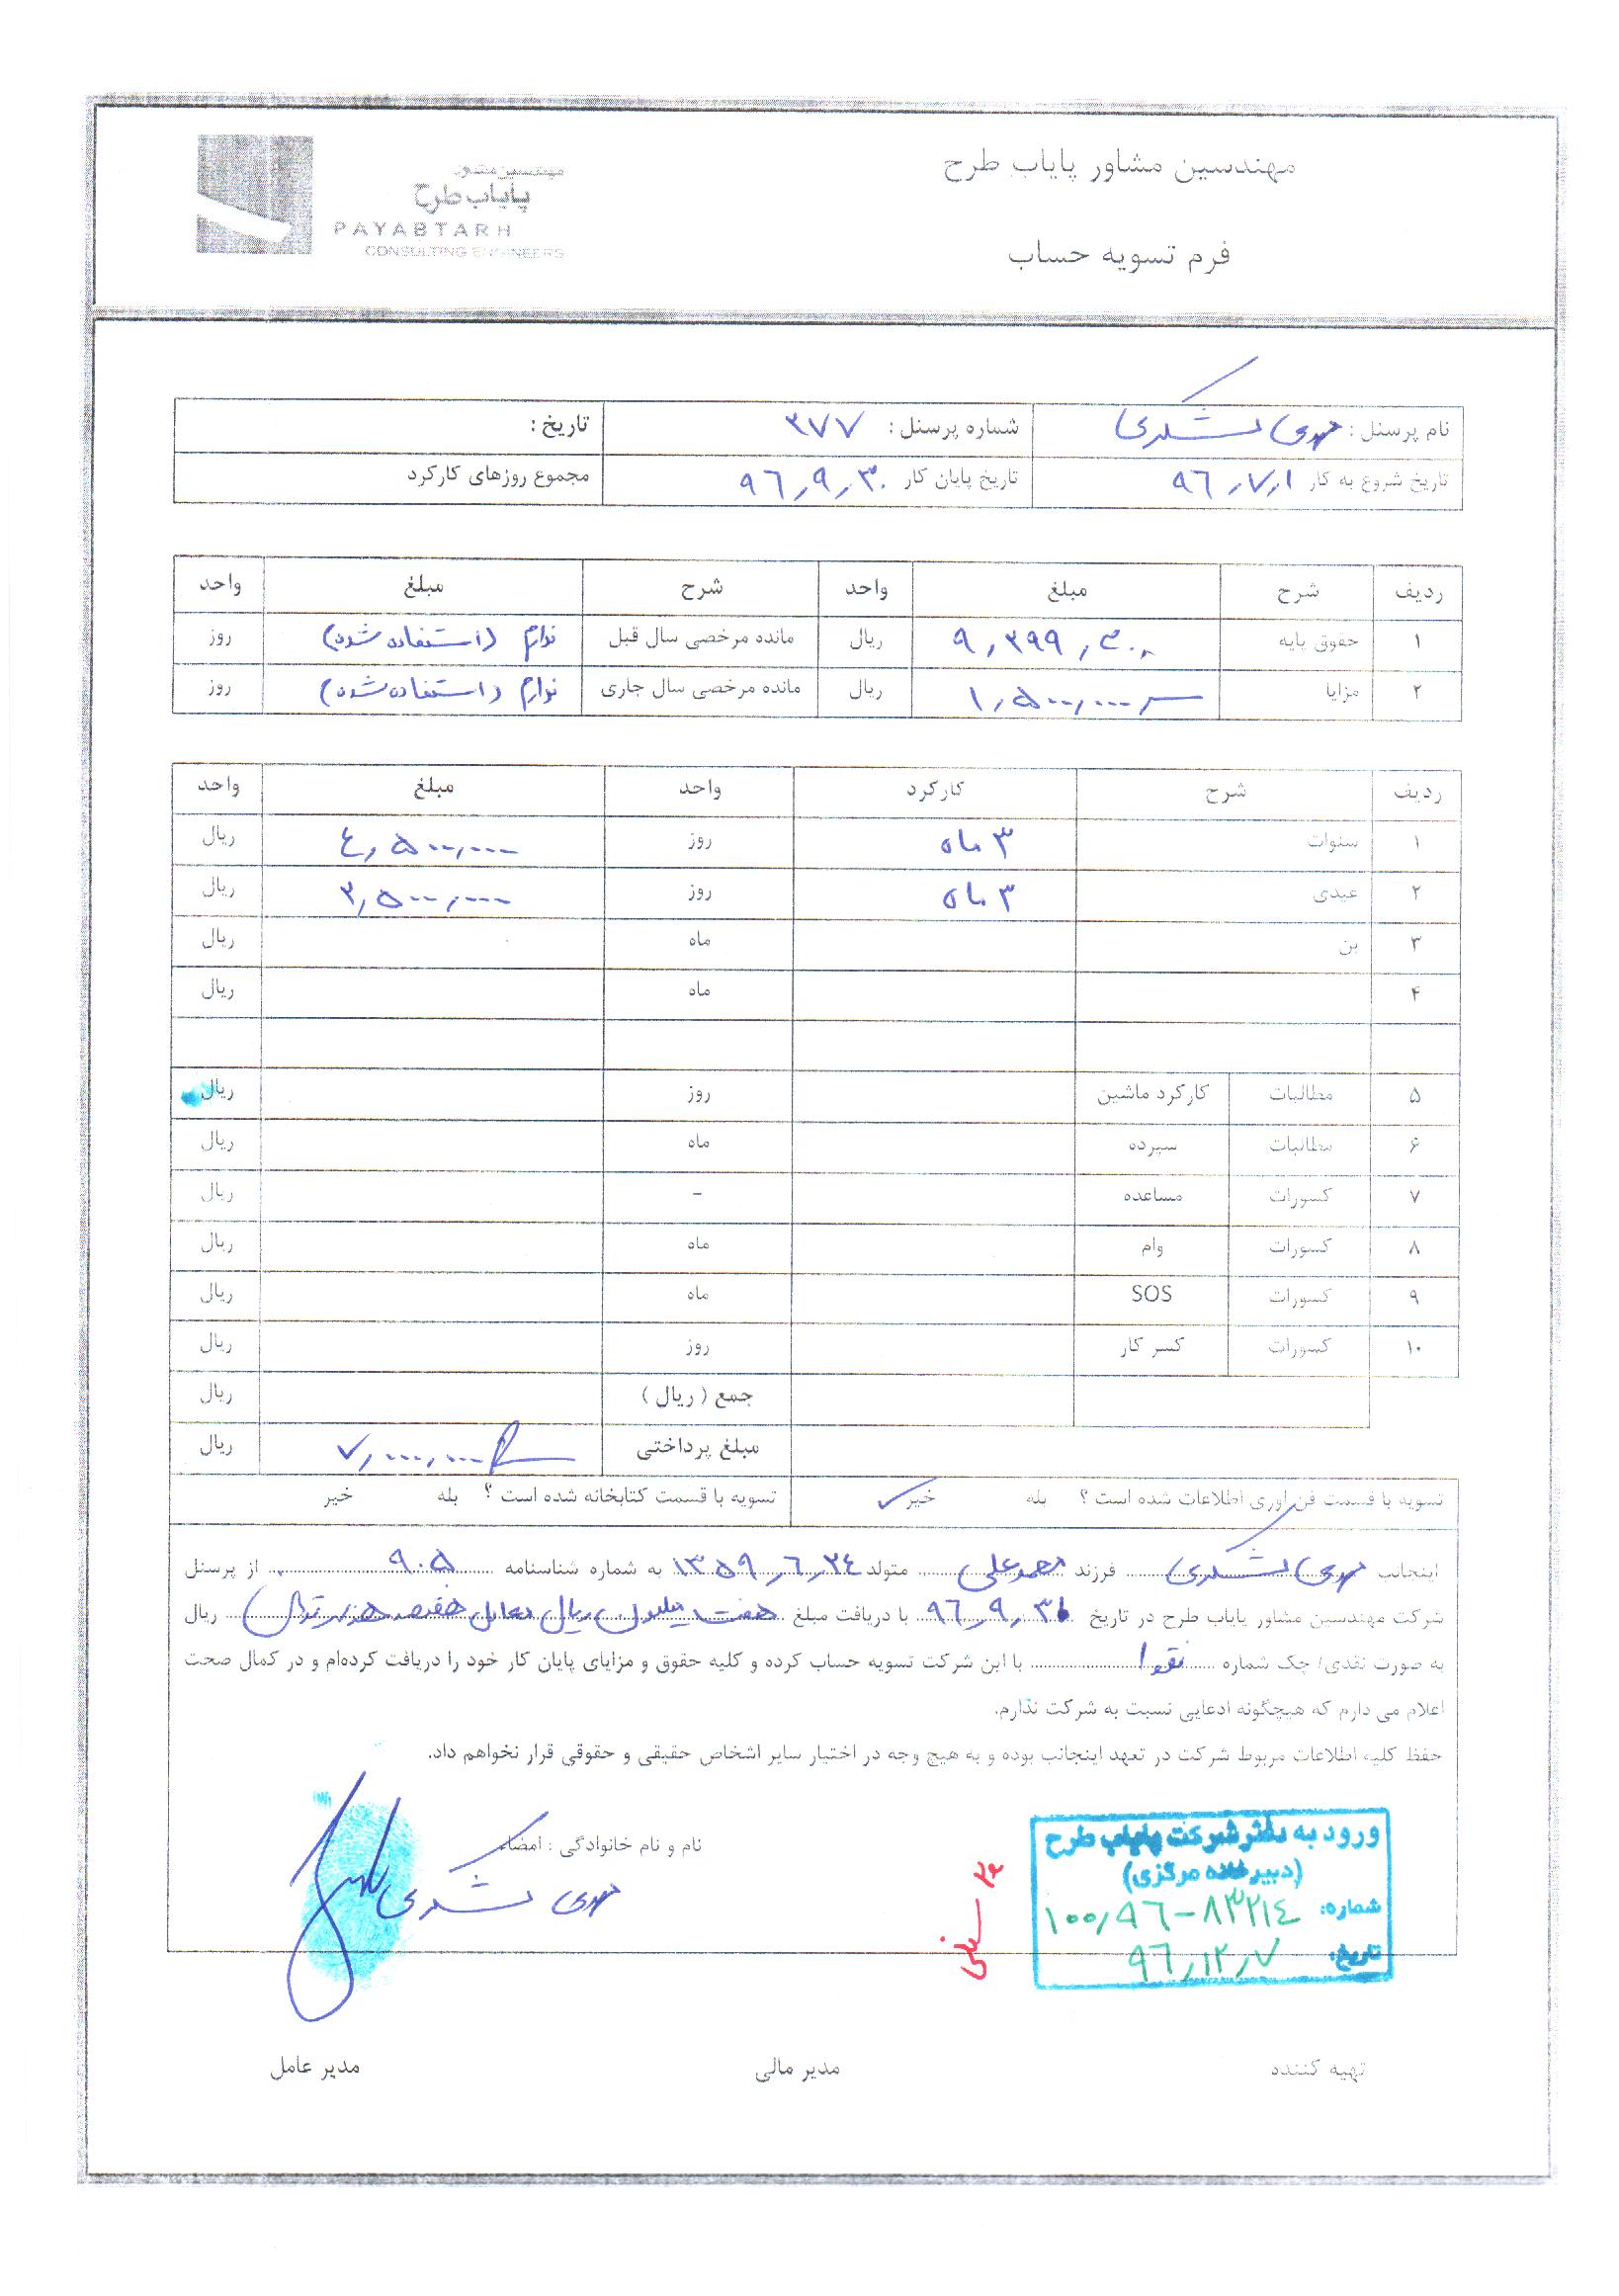 مهندسین مشاور پایاب طرح
مهندسین مشاور
پایاب طرح
PAYABTARH
CONSULTING ENGINEERS
فرم تسویه حساب
نام پرسنل : مهدی لشکری شماره پرسنل : ۳۷۷ تاریخ :
تاریخ شروع به کار ۹۶,۷,۱ تاریخ پایان کار ۹۶,۹,۳۰ مجموع روزهای کارکرد
ردیف شرح مبلغ واحد شرح مبلغ واحد
۱ حقوق پایه ریال مانده مرخصی سال قبل ندارم (استفاده شده) روز
۲ مزایا ۱,۵۰۰,۰۰۰ ریال مانده مرخصی سال جاری ندارم (استفاده شده) روز
ردیف شرح کارکرد واحد مبلغ واحد
۱ سنوات ۳ ماه روز ۴,۵۰۰,۰۰۰ ریال
۲ عیدی ۳ ماه روز ۲,۵۰۰,۰۰۰ ریال
۳ بن ماه ریال
۴ ماه ریال
۵ مطالبات کارکرد ماشین روز ریال
۶ مطالبات سپرده ماه ریال
۷ کسورات مساعده - ریال
۸ کسورات وام ماه ریال
۹ کسورات SOS ماه ریال
۱۰ کسورات کسر کار روز ریال
جمع ( ریال ) ریال
مبلغ پرداختی ۷,۰۰۰,۰۰۰ ریال
تسویه با قسمت فن آوری اطلاعات شده است ؟ بله خیر ✓ تسویه با قسمت کتابخانه شده است ؟ بله خیر
اینجانب مهدی لشکری فرزند محمدعلی متولد ۱۳۵۹,۶,۲۴ به شماره شناسنامه ۹۰۵ از پرسنل
شرکت مهندسین مشاور پایاب طرح در تاریخ ۹۶,۹,۳۰ با دریافت مبلغ هفت میلیون ریال معادل هفتصد هزار تومان ریال
به صورت نقدی/ چک شماره نقدا با این شرکت تسویه حساب کرده و کلیه حقوق و مزایای پایان کار خود را دریافت کرده‌ام و در کمال صحت
اعلام می دارم که هیچگونه ادعایی نسبت به شرکت ندارم.
حفظ کلیه اطلاعات مربوط شرکت در تعهد اینجانب بوده و به هیچ وجه در اختیار سایر اشخاص حقیقی و حقوقی قرار نخواهم داد.
نام و نام خانوادگی : امضاء
مهدی لشکری
ورود به دفتر شرکت پایاب طرح
(دبیرخانه مرکزی)
شماره: ۱۰۰,۹۶-۸۳۲۱۴
تاریخ: ۹۶,۱۲,۷
تهیه کننده مدیر مالی مدیر عامل